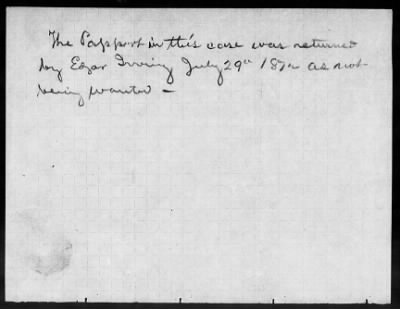 The Passport in this case was returned
by Edgar Irving July 29" 1872 as not
being wanted –